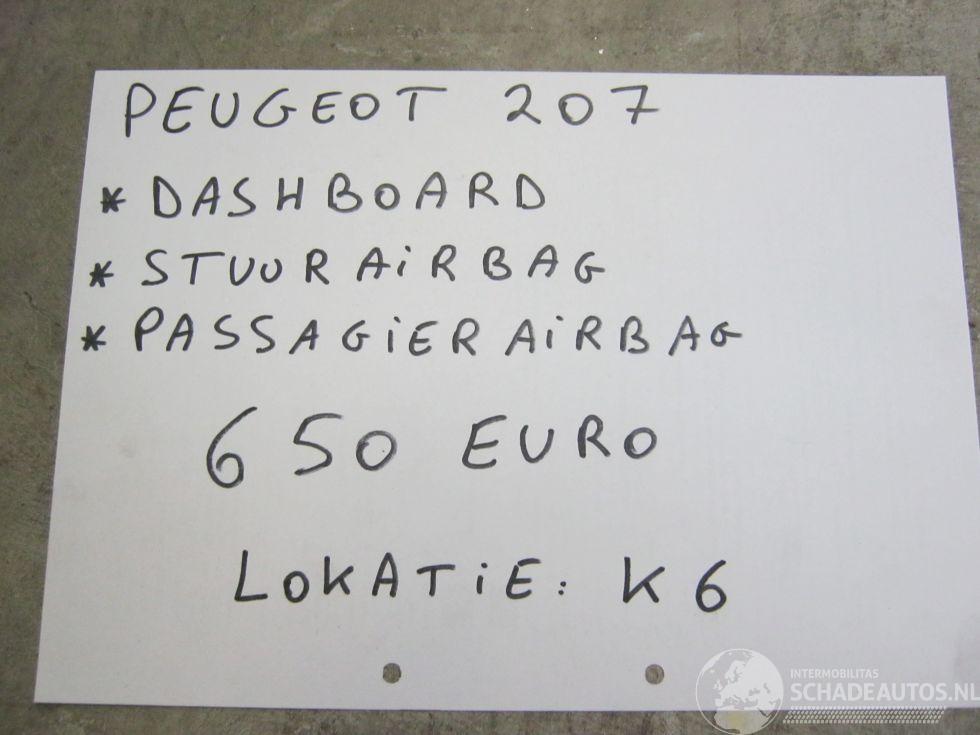 PEUGEOT 207
* DASHBOARD
* STUURAiRBAG
* PASSAGiERAiRBAG
650 EURO
LOKATiE: K6
INTERMOBILITAS
SCHADEAUTOS.NL